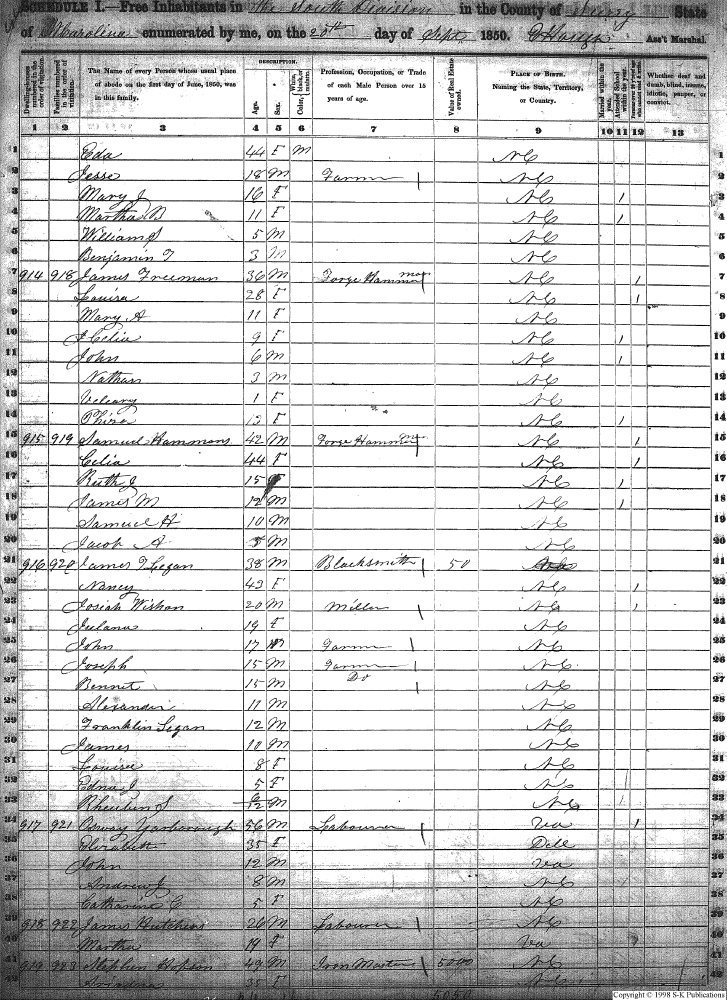 SCHEDULE I.—Free Inhabitants in the South Division in the County of Surry State
of N Carolina enumerated by me, on the 20th day of Sept 1850. Ass't Marshal.
Dwelling-houses numbered in the order of visitation.
Families numbered in the order of visitation.
The Name of every Person whose usual place of abode on the first day of June, 1850, was in this family.
DESCRIPTION.
Age.
Sex.
White, black, or mulatto. Color,
Profession, Occupation, or Trade of each Male Person over 15 years of age.
Value of Real Estate owned.
PLACE OF BIRTH. Naming the State, Territory, or Country.
Married within the year.
Attended School within the year.
Whether deaf and dumb, blind, insane, idiotic, pauper, or convict.
1 2 3 4 5 6 7 8 9 10 11 12 13
1 Eda 44 F M NC 1
2 Jesse 18 M Farmer NC 2
3 Mary J 16 F NC 1 3
4 Martha B 11 F NC 1 4
5 William S 5 M NC 5
6 Benjamin T 3 M NC 6
7 914 918 James Freeman 36 M Forge Hammerman NC 1 7
8 Louisa 28 F NC 1 8
9 Mary A 11 F NC 9
10 Celia 9 F NC 1 10
11 John 6 M NC 1 11
12 Nathan 3 M NC 12
13 1 F NC 13
14 13 F NC 1 14
15 915 919 Samuel Hammons 42 M Forge Hammerm NC 1 15
16 Celia 44 F NC 1 16
17 Ruth J 15 F NC 1 17
18 James M 12 M NC 1 18
19 Samuel H 10 M NC 19
20 Jacob A 5 M NC 20
21 916 920 James T Legan 38 M Blacksmith 50 21
22 Nancy 43 F NC 1 22
23 Josiah Wishon 20 M Miller NC 1 23
24 Juliana 19 F NC 24
25 John 17 M Farmer NC 25
26 Joseph 15 M Farmer NC 26
27 Bennet 15 M Do NC 27
28 Alexander 11 M NC 28
29 Franklin Legan 12 M NC 29
30 James 10 M NC 30
31 Louisa 8 F NC 31
32 Edna J 5 F NC 32
33 M NC 33
34 917 921 Yarborough 56 M Labourer Va 1 34
35 Elizabeth 35 F Dell 35
36 John 12 M Va 36
37 Andrew J 8 M NC 37
38 Catharine C 5 F NC 38
39 918 922 James Hutchens 26 M Labourer NC 39
40 Martha 19 F Va 40
41 919 923 Stephen Hobson 49 M Iron Master 5000 NC 41
42 35 F NC 42
Copyright © 1998 S-K Publications